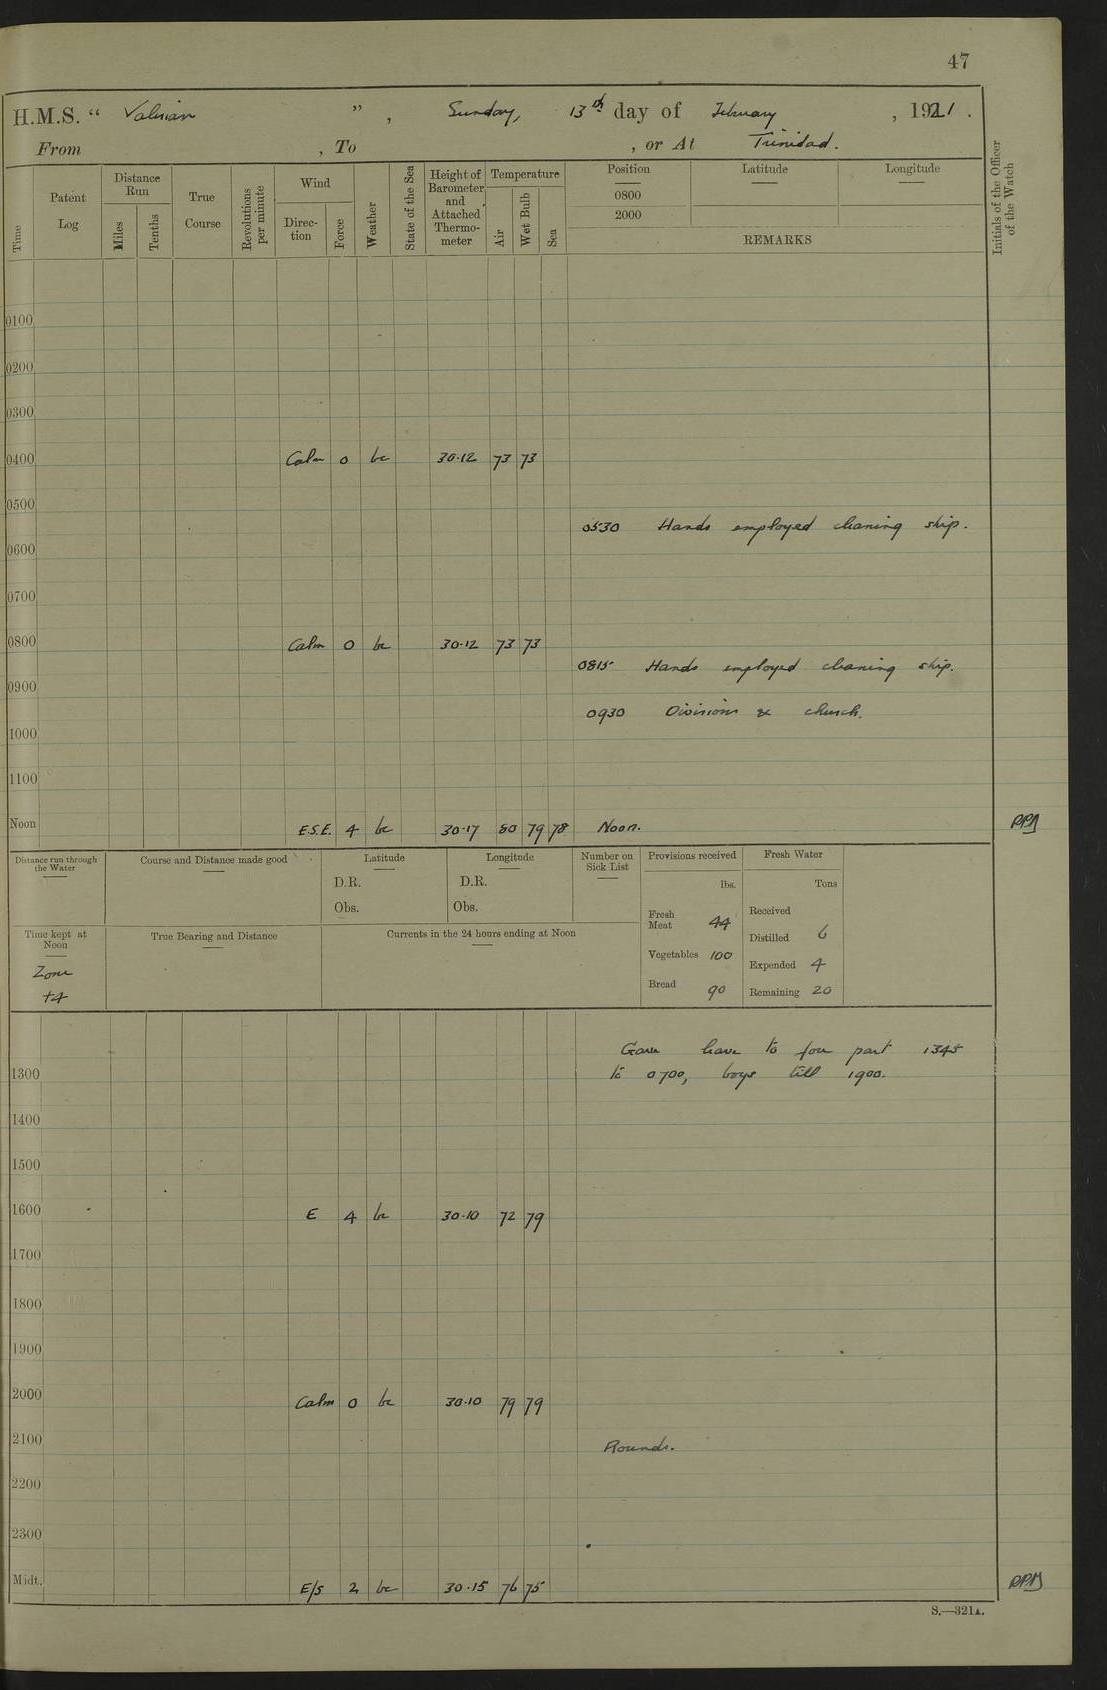 47
H.M.S. “ Valerian ” , Sunday, 13th day of February , 1921 .
From , To , or At Trinidad.
Time
Patent Log
Distance Run
Miles
Tenths
True Course
Revolutions per minute
Wind
Direc-tion
Force
Weather
State of the Sea
Height of Barometer and Attached Thermo-meter
Temperature
Air
Wet Bulb
Sea
Position
0800
2000
Latitude
Longitude
REMARKS
Initials of the Officer of the Watch
0100
0200
0300
0400 Calm 0 bc 30.12 73 73
0500
0530 Hands employed cleaning ship.
0600
0700
0800 Calm 0 bc 30.12 73 73
0815 Hands employed cleaning ship.
0900
0930 Divisions & church.
1000
1100
Noon E.S.E. 4 bc 30.17 80 79 78 Noon.
Distance run through the Water
Course and Distance made good
Latitude
D.R.
Obs.
Longitude
D.R.
Obs.
Number on Sick List
Provisions received
lbs.
Fresh Meat 44
Vegetables 100
Bread 90
Fresh Water
Tons
Received
Distilled 6
Expended 4
Remaining 20
Time kept at Noon
Zone
+4
True Bearing and Distance
Currents in the 24 hours ending at Noon
Gave leave to fou part 1345
to 0700, boys till 1900.
1300
1400
1500
1600 E 4 bc 30.10 72 79
1700
1800
1900
2000 Calm 0 bc 30.10 79 79
2100 Rounds.
2200
2300
Midt. E/S 2 bc 30.15 76 75
S.—321A.